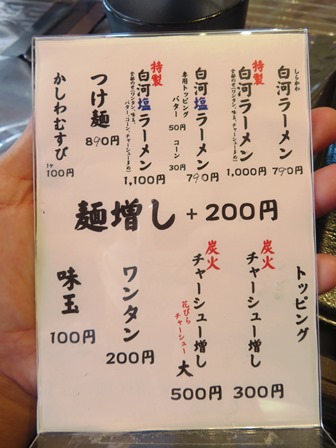 しらかわ
白河ラーメン
790円
特製
白河ラーメン
1,000円
白河塩ラーメン
790円
専用トッピング
バター
50円
コーン
30円
特製
白河塩ラーメン
1,100円
つけ麺
890円
かしわむすび
1ケ
100円
麺増し+200円
トッピング
炭火
チャーシュー増し
300円
炭火
チャーシュー増し
花びら
チャーシュー
大
500円
ワンタン
200円
味玉
100円